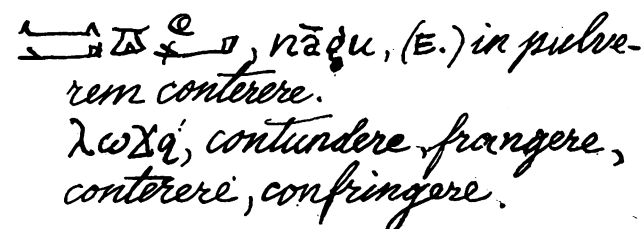 , nāg̣u, (E.) in pulve-
rem conterere.
ⲗⲱϫϥ̇, contundere, frangere,
conterere, confringere.